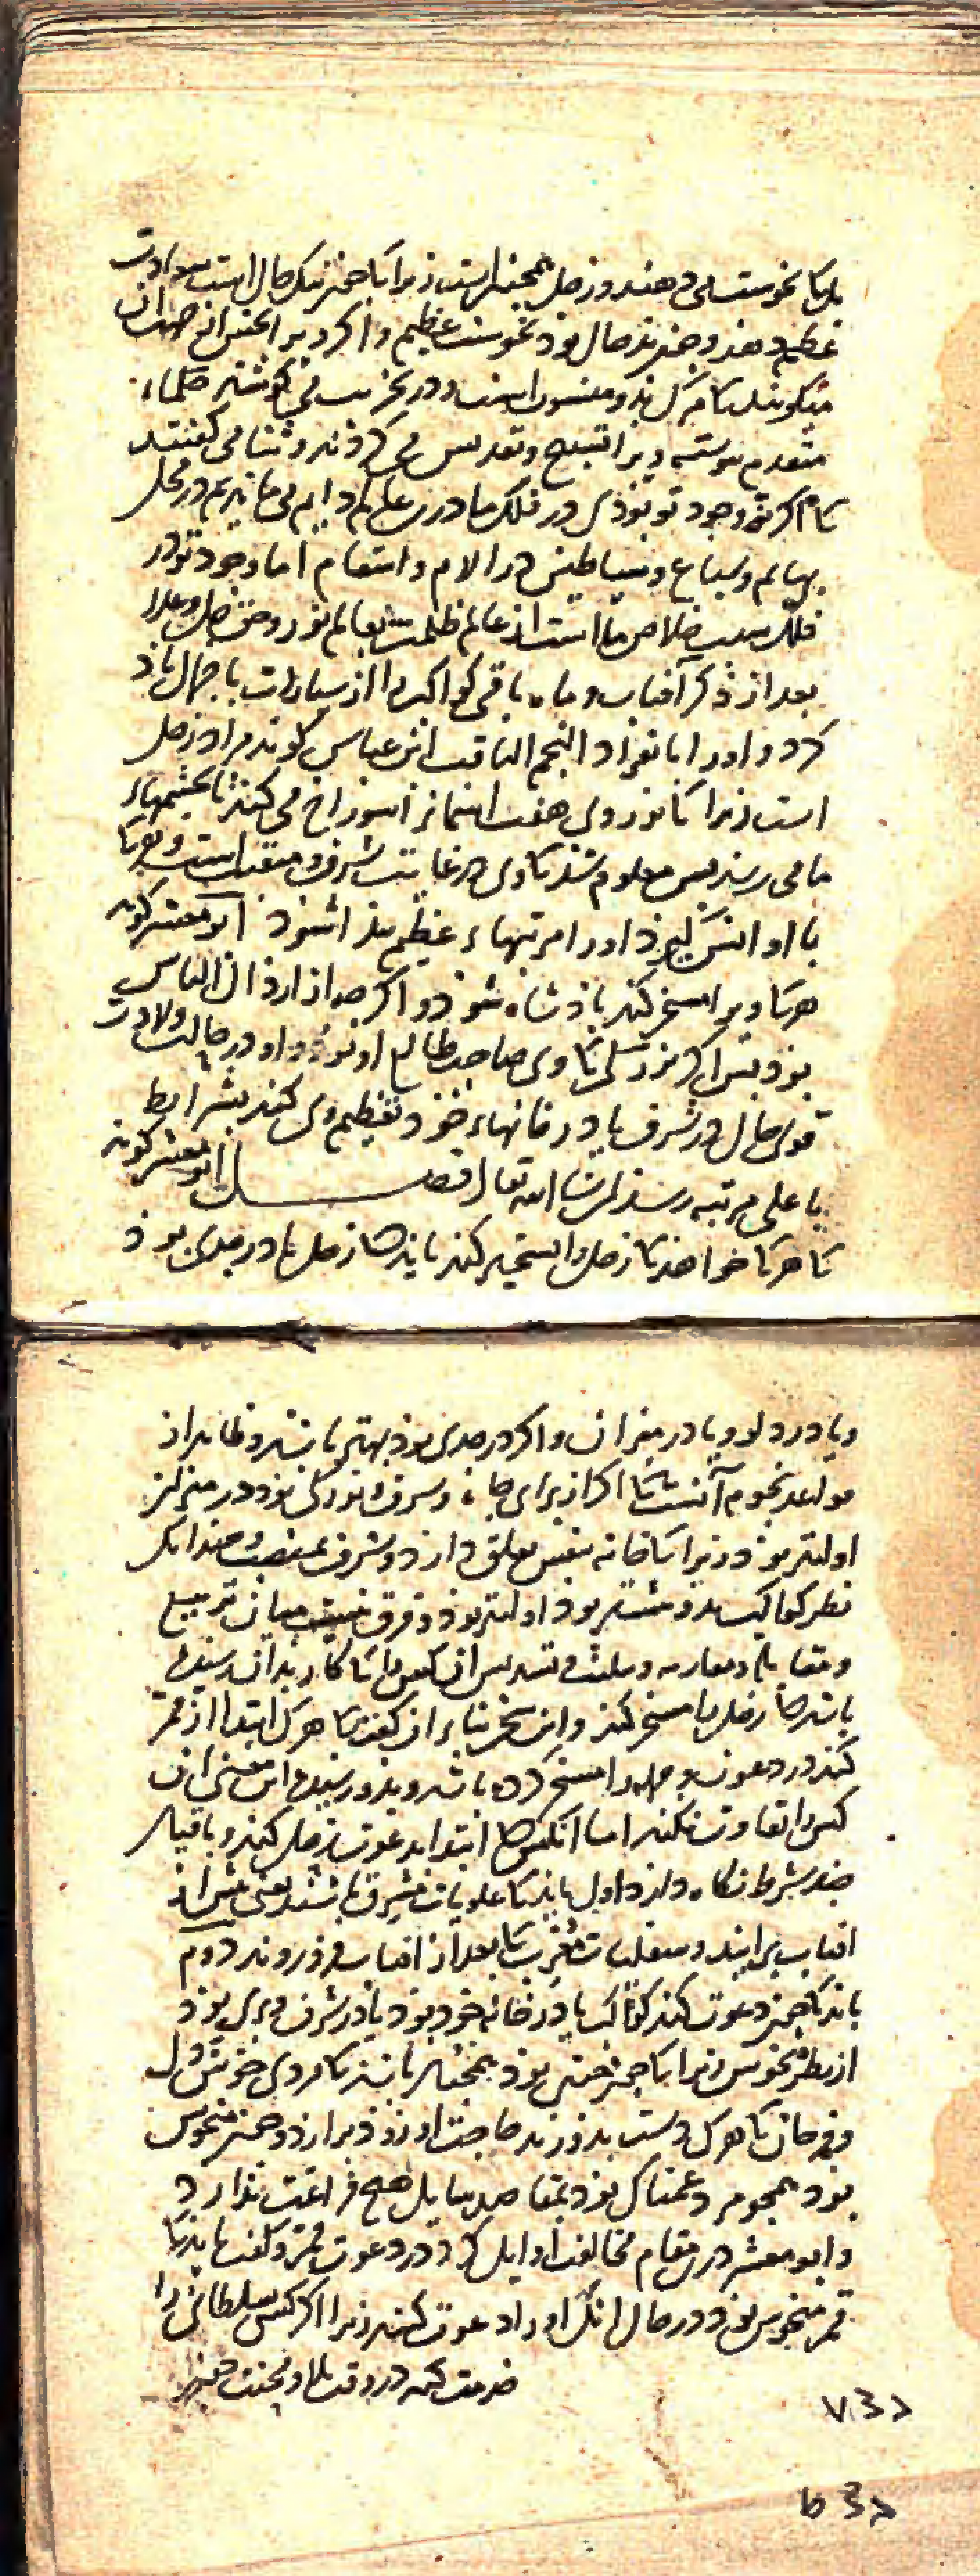 نحوست می دهند و زحل همچنین است زیرا کا چون نیک حال است سعادت
عظیم دهد و چون بد حال بود نحوست عظیم و اگر ویرا نحس
میگویند مرگ بدو منسوبست و در تخریب می کوشند حکماء
متقدم پیوسته ویرا تسبیح و تقدیس می کردند و ثنا می گفتند
کا اگر نه وجود تو بودی در فلک ما درین عالم دایم می ماندیم در محل
بهایم و سباع و شیاطین در آلام و اسقام اما وجود تو در
فلک سبب خلاص ما است از عالم ظلمت بعالم نور و حق جل و علا
بعد از ذکر آفتاب و ماه باقی کواکب را از سیارات باجمال یاد
کرد و او را بانفراد النجم الثاقب ابن عباس گوید مراد زحل
است زیرا کا نور وی هفت آسمان را سوراخ می کند تا بچشمهاء
ما می رسد پس معلوم شد کا وی در غایت شرف و منقبت است و هرکا
با او انس گیرد او را مرتبهاء عظیم پیدا شود ابو معشر گوید
هرکا ویرا مسخر کند پادشاه شود و اگر چه از ارذال الناس
بود پس اگر بزرگی کا وی صاحب طالع او بود و او در حالت ولادت
قوی حال در شرف یا در خانهاء خود تعظیم وی کند بشرایط
باعلی مرتبه رسد ان شاء الله تعالی فصل ابو معشر گوید
کا هرکا خواهد کا زحل را تسخیر کند باید کا زحل یا در جدی بود
و یا در دلو و یا در میزان و اگر در جدی بود بهتر باشد و ظاهر از
قواعد نجوم آنست کا اگر از برای جاه و شرف و بزرگی بود در میزان
اولیتر بود زیرا کا خانه بنفس تعلق دارد و شرف بمنصب و چندانک
نظر کواکب بدو بیشتر بود اولیتر بود و فرق نیست میان تربیع
و مقابله و مقارنه و تثلیث و تسدیس آن کس را کا کار بدان رسیده
باشد کا زحل را مسخر کند و این سخن بناء آن گفت کا هرک ابتدا از قمر
کند در دعوت و جمله را مسخر کرده باشد و بدو رسیده این معنی آن
کس را تفاوت نکند اما آنکس کا ابتدا بدعوت زحل کند و باقیان
چند شرط نگاه دارد اول باید کا علویات مشرق باشند یعنی پیش از
آفتاب برآیند و سفلیات مغرب کا بعد از آفتاب فرو روند دوم
باید کا چون دعوت کند کواکب یا در خانه خود بود یا در شرف و بری بود
از نظر نحوس زیرا کا چون چنین بود همچنان باشد کا مردی خوش دل
و فرحان کا هرک دست بدو زند حاجت او زود برآرد و چون منحوس
بود همچو مرد غمناک بود بمقاصد سایل هیچ فراغت ندارد
و ابو معشر درین مقام مخالفت اوایل کرد در دعوت قمر و گفت باید کا
قمر منحوس بود در حال آنک او را دعوت کند زیرا اگر کسی سلطانی را
خدمت کند در وقت بلا و محنت